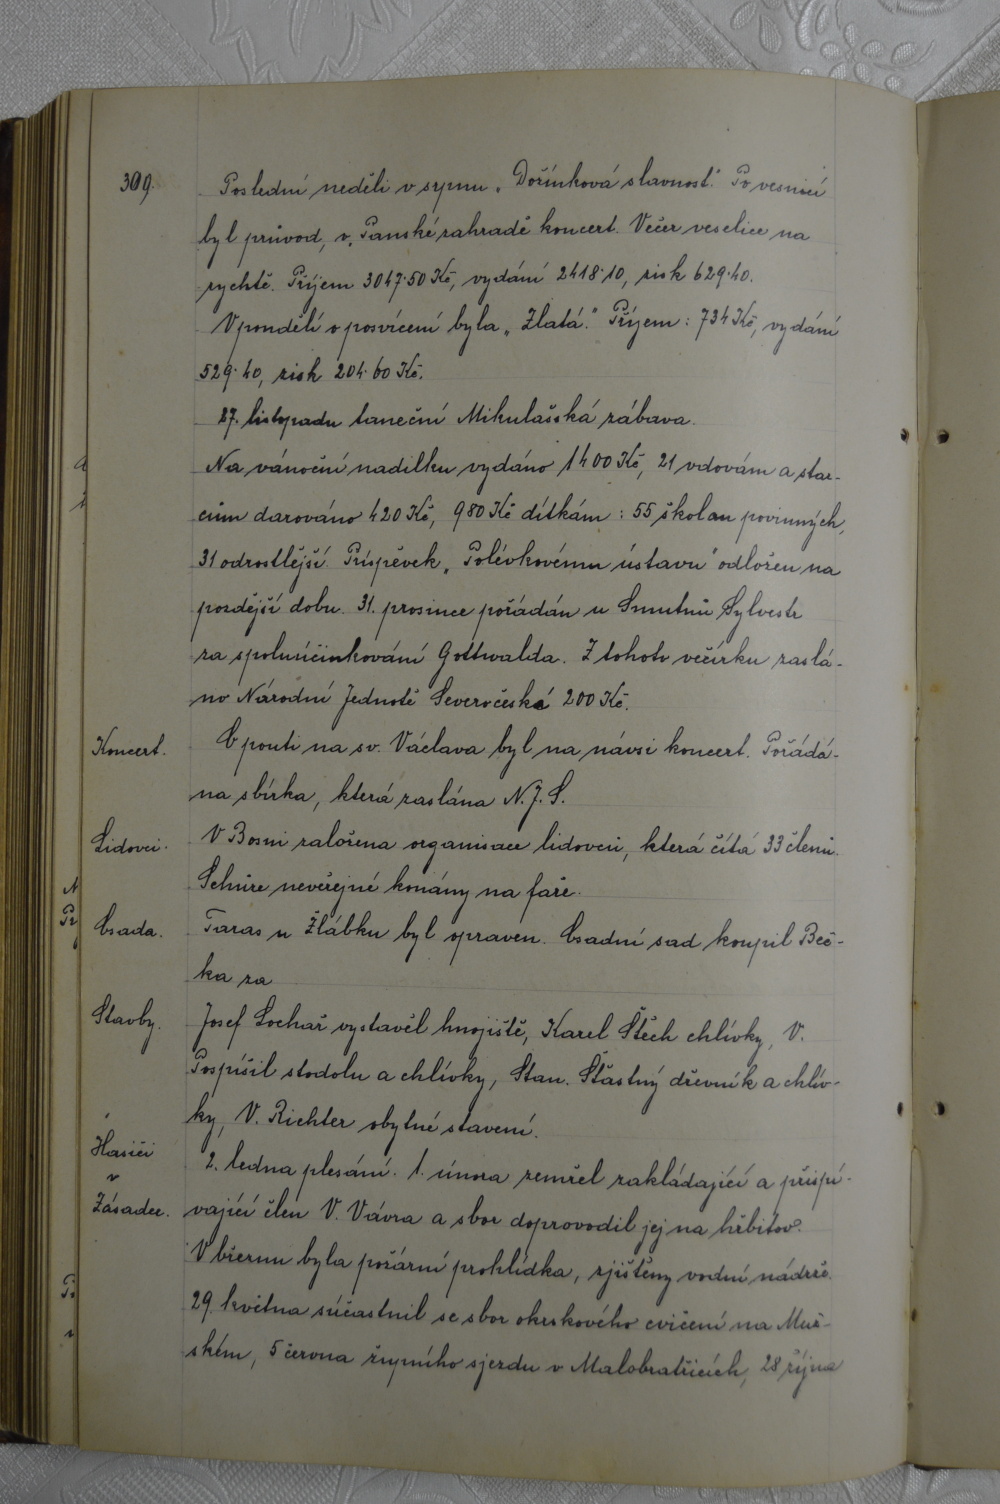 309.
Poslední neděli v srpnu „Dožínková slavnost." Po vesnici
byl průvod, v „Panské zahradě koncert. Večer veselice na
rychtě. Příjem 3047·50 Kč, vydání 2418·10, zisk 629·40.
V pondělí o posvícení byla „Zlatá." Příjem: 734 Kč, vydání
529·40, zisk 204·60 Kč.
27. listopadu taneční Mikulašská zábava.
Na vánoční nadílku vydáno 1400 Kč, 21 vdovám a star-
cům darováno 420 Kč, 980 Kč dítkám: 55 školou povinných,
31 odrostlejší. Príspěvek „Polévkovému ústavu" odložen na
pozdější dobu. 31. prosince pořádán u Smutnů Sylvestr
za spoluúčinkování Gottwalda. Z tohoto večírku zaslá-
no Národní Jednotě Severočeská 200 Kč.
Koncert.
O pouti na sv. Václava byl na návsi koncert. Pořádá-
na sbírka, která zaslána N. J. S.
Lidovci.
V Bosni založena organisace lidovců, která čítá 33 členů.
Schůze neveřejné konány na faře.
Osada.
Taras u Žlábku byl opraven. Osadní sad koupil Beč-
ka za
Stavby.
Josef Lochař vystavěl hnojiště, Karel Štěch chlívky, V.
Pospíšil stodolu a chlívky, Stan. Šťastný dřevník a chlív-
ky, V. Richter obytné stavení.
Hasiči
v
Zásadce.
2. ledna plesání. 1. února zemřel zakládající a přispí-
vající člen V. Vávra a sbor doprovodil jej na hřbitov.
V březnu byla požární prohlídka, zjištěny vodní nádrže.
29. května súčastnil se sbor okrskového cvičení na Muž-
ském, 5 června župního sjezdu v Malobratřicích, 28 října